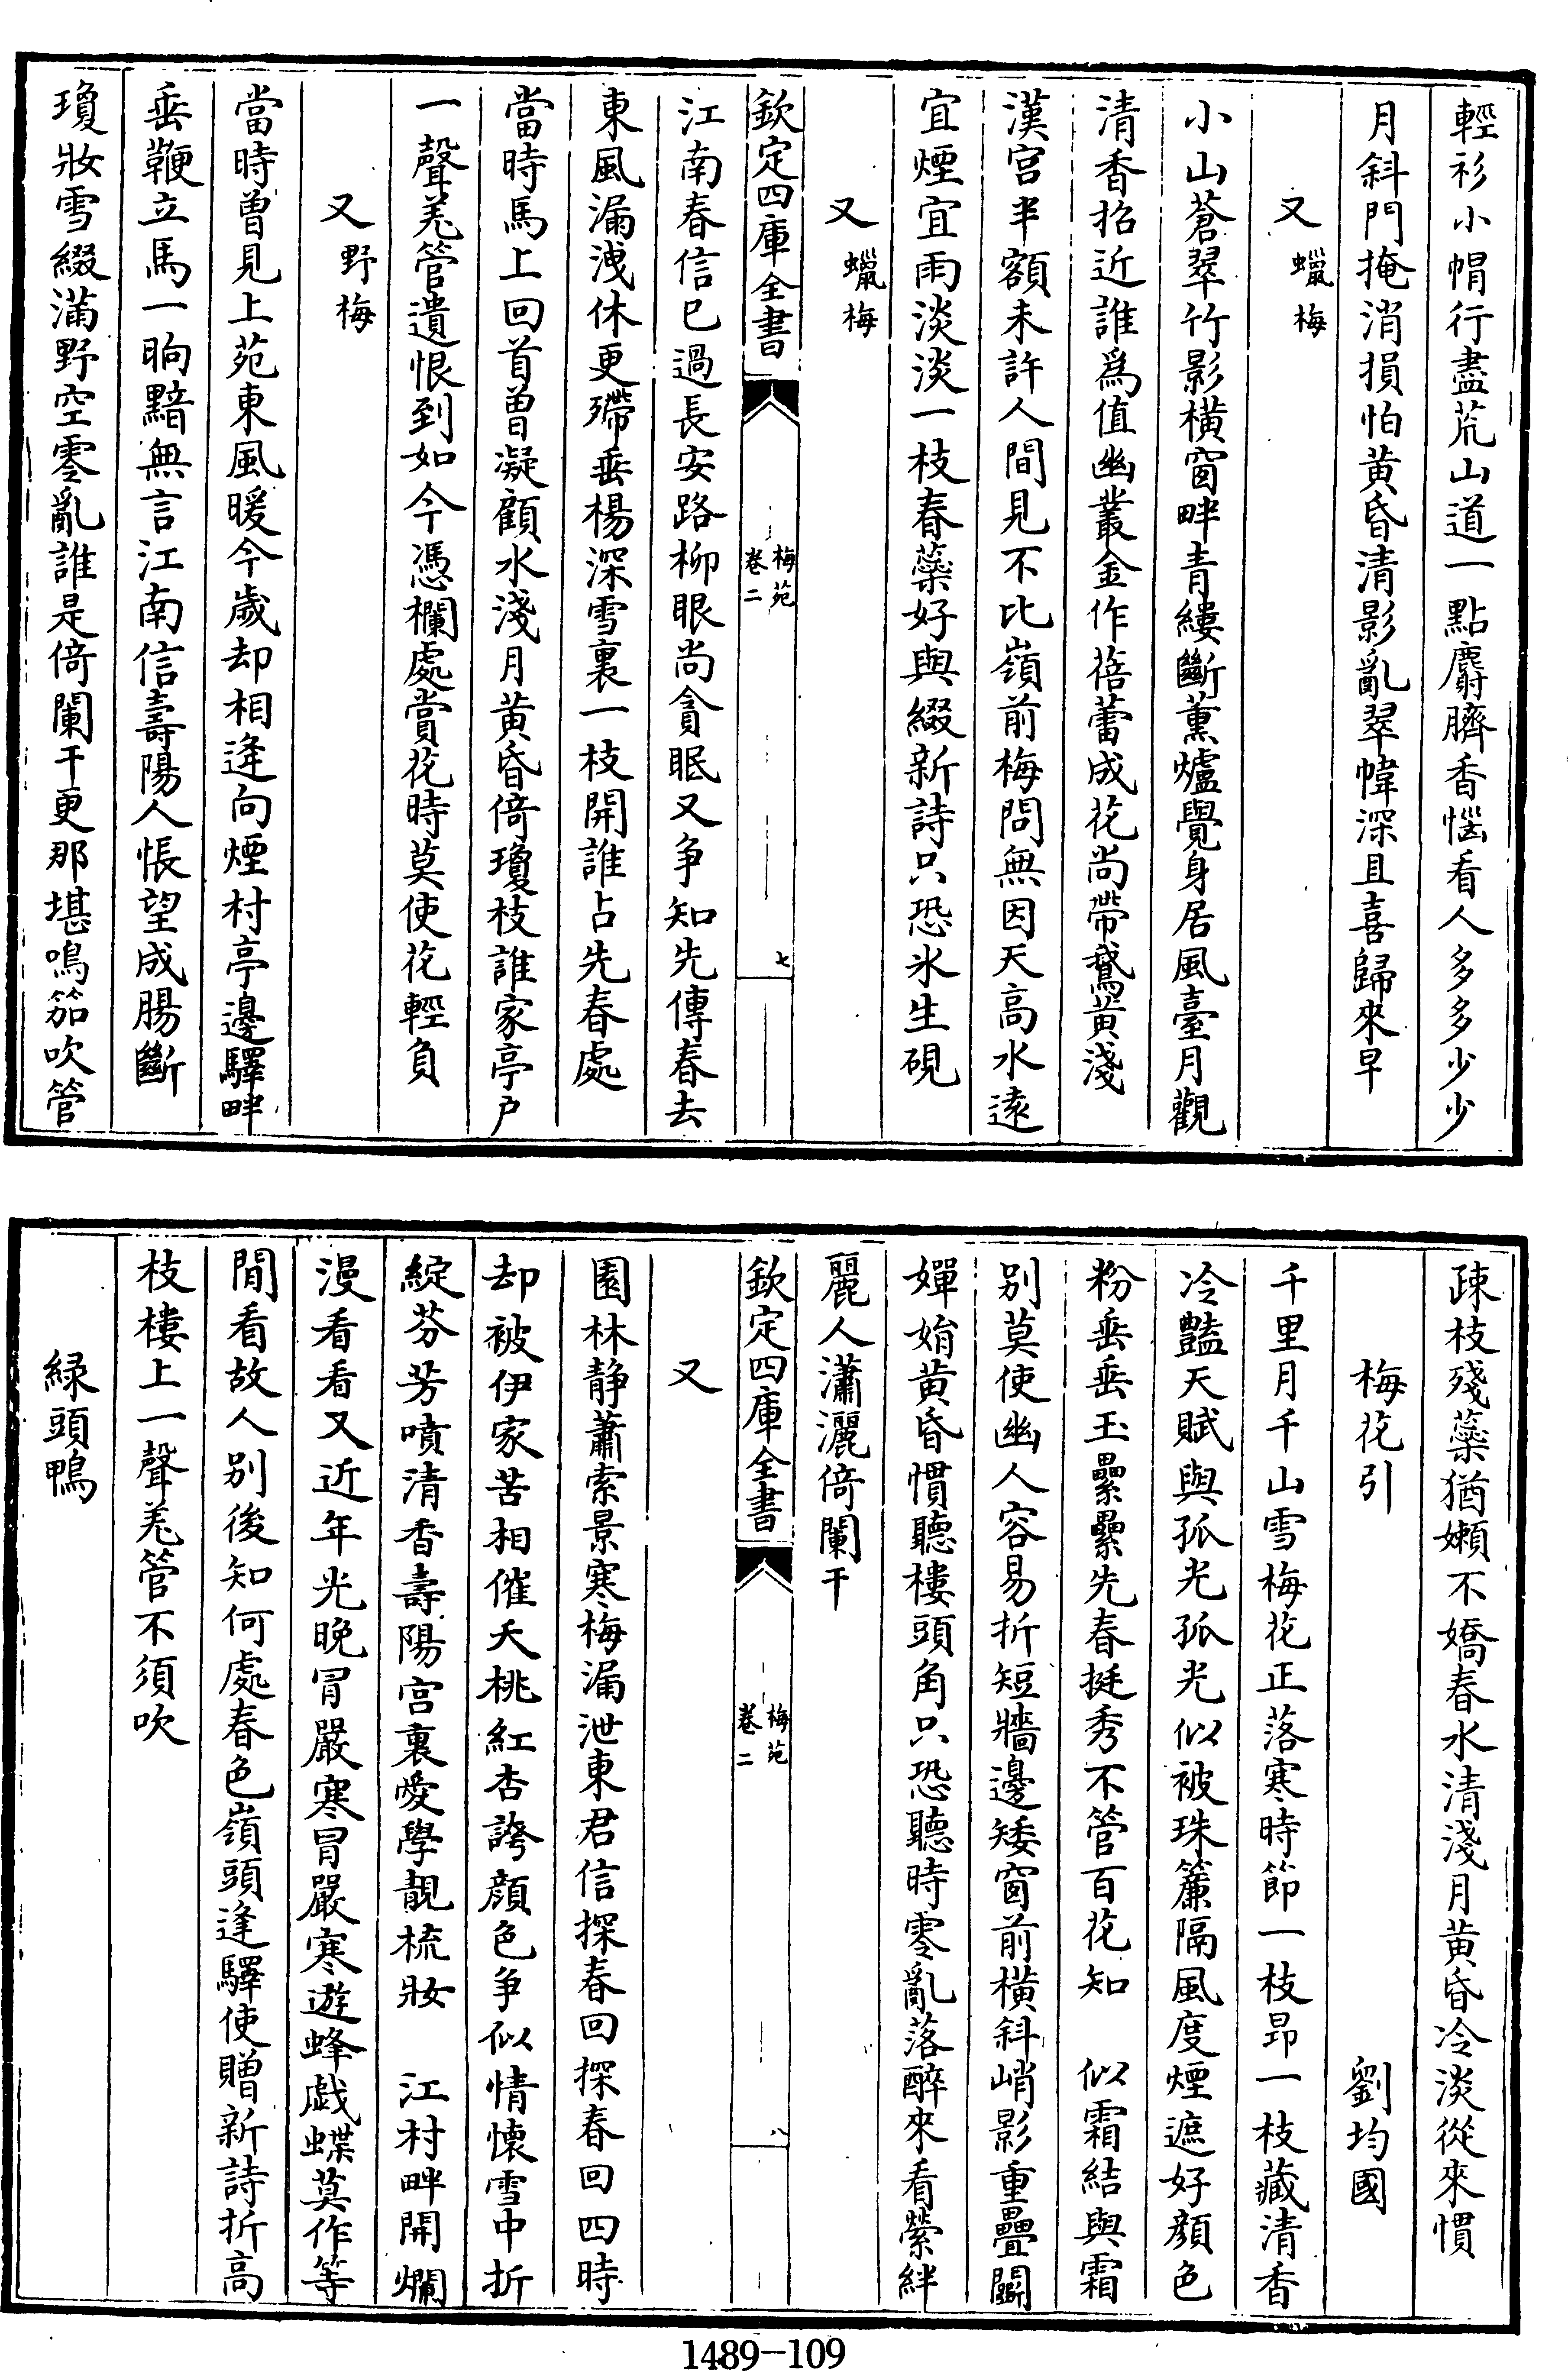 輕衫小帽行盡荒山道一點麝臍香惱看人多多少少
月斜門掩消損怕黄昏清影亂翠幃深且喜歸來早
又蠟梅
小山蒼翠竹影橫窗畔青縷斷薰爐覺身居風臺月觀
清香招近誰爲值幽叢金作蓓蕾成花尚帶鵞黄淺
漢宫半額未許人間見不比嶺前梅問無因天高水逺
宜煙宜雨淡淡一枝春蘂好與綴新詩只恐氷生硯
又蠟梅
欽定四庫全書
梅苑
卷二
七
江南春信已過長安路柳眼尚貪眠又争知先傳春去
東風漏洩休更殢垂楊深雪裏一枝開誰占先春處
當時馬上回首曽凝顧水淺月黄昏倚瓊枝誰家亭户
一聲羌管遺恨到如今憑欄處賞花時莫使花輕負
又野梅
當時曽見上苑東風暖今歲却相逢向煙村亭邊驛畔
垂鞭立馬一晌黯無言江南信壽陽人悵望成腸斷
瓊妝雪綴滿野空零亂誰是倚闌干更那堪鳴笳吹管
疎枝殘蘂猶嬾不嬌春水清淺月黄昏冷淡從來慣
梅花引 劉均國
千里月千山雪梅花正落寒時節一枝昂一枝藏清香
冷豔天賦與孤光孤光似被珠簾隔風度煙遮好顔色
粉垂垂玉纍纍先春挺秀不管百花知 似霜結與霜
别莫使幽人容易折短牆邊矮窗前橫斜峭影重疊鬭
嬋娟黄昏慣聽樓頭角只恐聽時零亂落醉來看縈絆
麗人瀟灑倚闌干
欽定四庫全書
梅苑
卷二
八
又
園林静蕭索景寒梅漏泄東君信探春回探春回四時
却被伊家苦相催夭桃紅杏誇顔色争似情懷雪中折
綻芬芳噴清香壽陽宫裏愛學靚梳妝 江村畔開爛
漫看看又近年光晚冐嚴寒冐嚴寒遊蜂戯蝶莫作等
閒看故人别後知何處春色嶺頭逢驛使贈新詩折高
枝樓上一聲羌管不須吹
緑頭鴨
1489-109